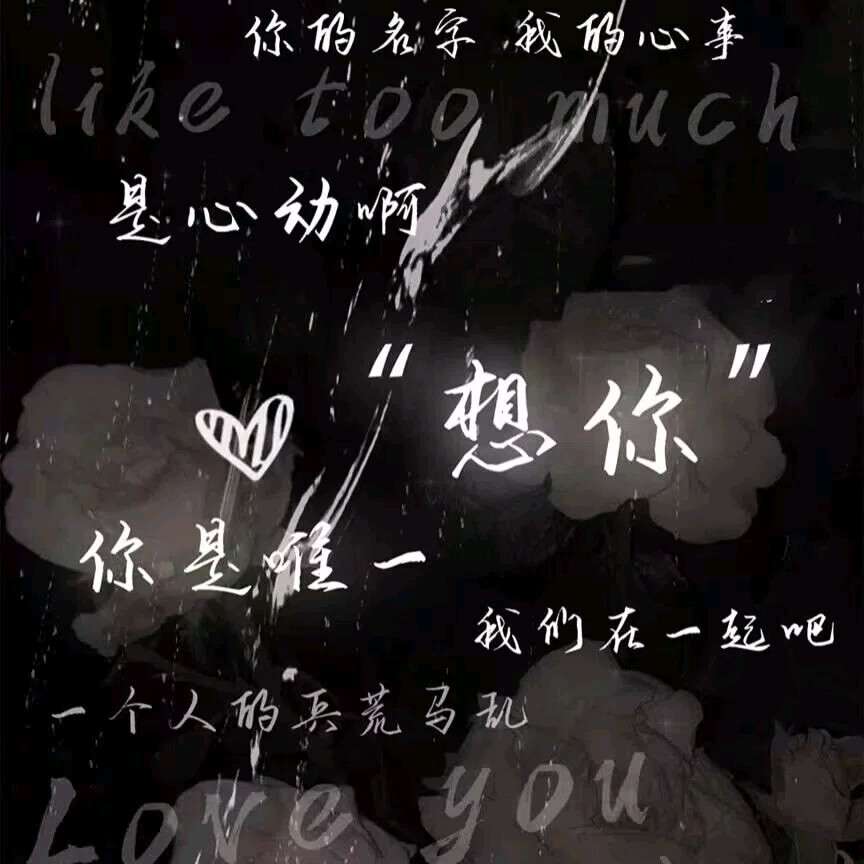 你的名字 我的心事
like too much
是心动啊
“想你”
你是唯一
我们在一起吧
一个人的兵荒马乱
Love you